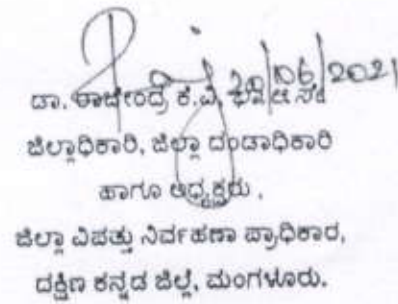 20/06/2021
ಡಾ. ರಾಜೇಂದ್ರ ಕೆ.ವಿ, ಭಾ.ಆ.ಸೇ
ಜಿಲ್ಲಾಧಿಕಾರಿ, ಜಿಲ್ಲಾ ದಂಡಾಧಿಕಾರಿ
ಹಾಗೂ ಅಧ್ಯಕ್ಷರು,
ಜಿಲ್ಲಾ ವಿಪತ್ತು ನಿರ್ವಹಣಾ ಪ್ರಾಧಿಕಾರ,
ದಕ್ಷಿಣ ಕನ್ನಡ ಜಿಲ್ಲೆ, ಮಂಗಳೂರು.